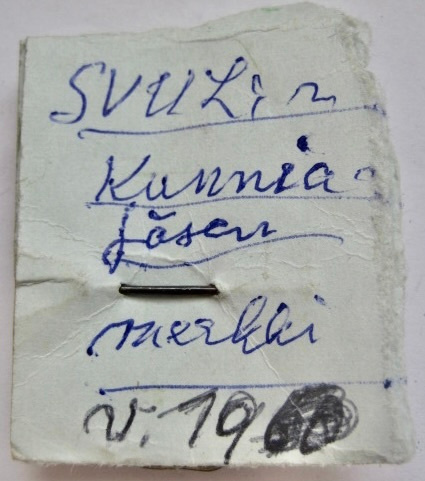 SVUL:n
Kunnia-
jäsen
merkki
v. 19